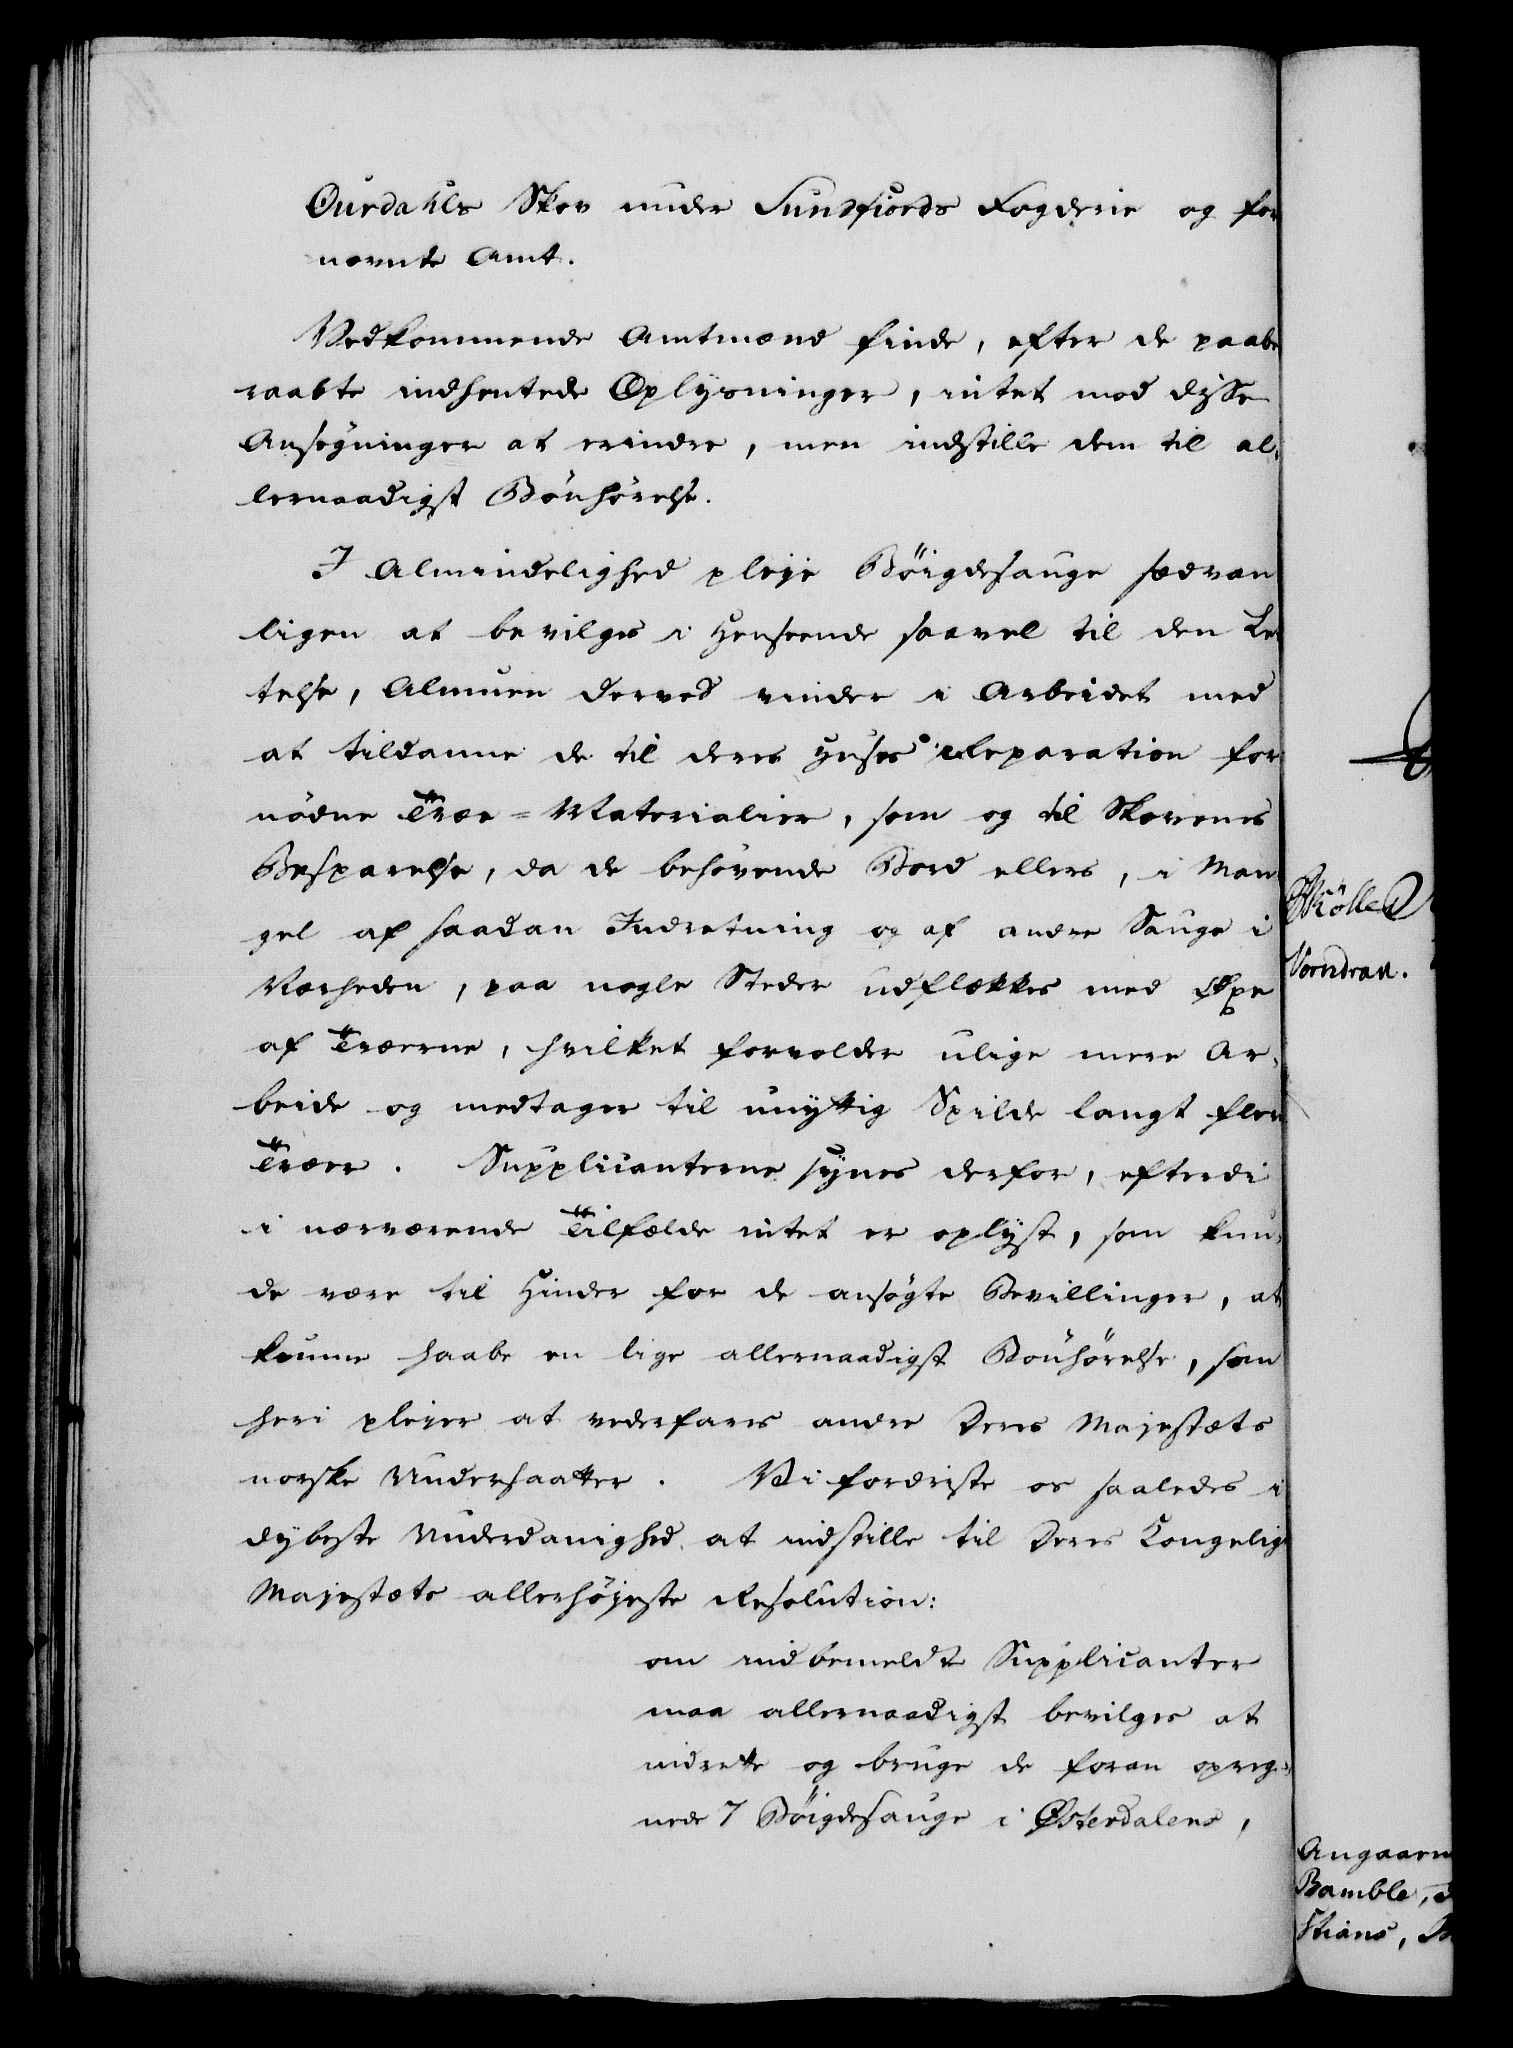 Ourdahls Skov under Sundfiords Fogderie og for
nævnte Amt.
Vedkommende Amtmænd finde, efter de paabe
raabte indhentede Oplysninger, intet mod disse
Ansøgninger at erindre, men indstille dem til al-
lernaadigst Bönhörelse.
I Almindelighed pleje Böigdesauge sædvan
ligen at bevilges i Henseende saavel til den Let
telse, Almuen derved vinder i Arbeidet med
at tildanne de til deres Huses Reparation for
nödne Træe-Materialier, som og til Skovenes
Besparelse, da de behøvende Bord ellers, i Man
gel af saadan Indretning og af andre Sauge i
Nærheden, paa nogle Steder udflækkes med Øxe
af Træerne, hvilket forvolder ulige mere Ar-
beide og medtager til unyttig Spilde langt flere
Træer. Supplicanterne synes derfor, efterdi
i nærværende Tilfælde intet er oplyst, som kun-
de være til Hinder for de ansøgte Bevillinger, at
kunne haabe en lige allernaadigst Bönhörelse, som
heri plejer at vederfares andre Deres Majestæts
norske Undersaatter. Vi fordriste os saaledes i
dybeste Underdanighed at indstille til Deres Kongelige
Majestæts allerhöjeste Resolution:
om indbemeldte Supplicanter
maa allernaadigst bevilges at
indrette og bruge de foran opreg-
nede 7 Böigdesauge i Østerdalens,
Möller
Vorndran.
Angaaen
Bamble,
stians,